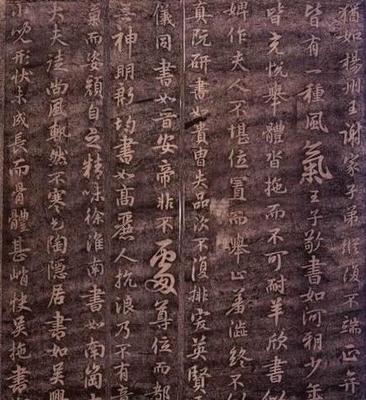 猶如楊州王謝家子弟縱復不端正弈
皆有一種風氣王子敬書如何祖少年
皆充悅舉體沓拖而不可耐羊欣書似
婢作夫人不堪位置而舉止羞澀終不似
真阮研書如貴冑失品次不復排突英賢王
儀同書如晉安帝非不處尊位而都
無神明殷均書如高麗人抗浪乃不有意
氣而姿顏自乏精味徐淮南書如南岡士
大夫徒尚風軌然不寒乞陶隱居書如吳興
小兒形狀未成長而骨體甚峭快吳施書